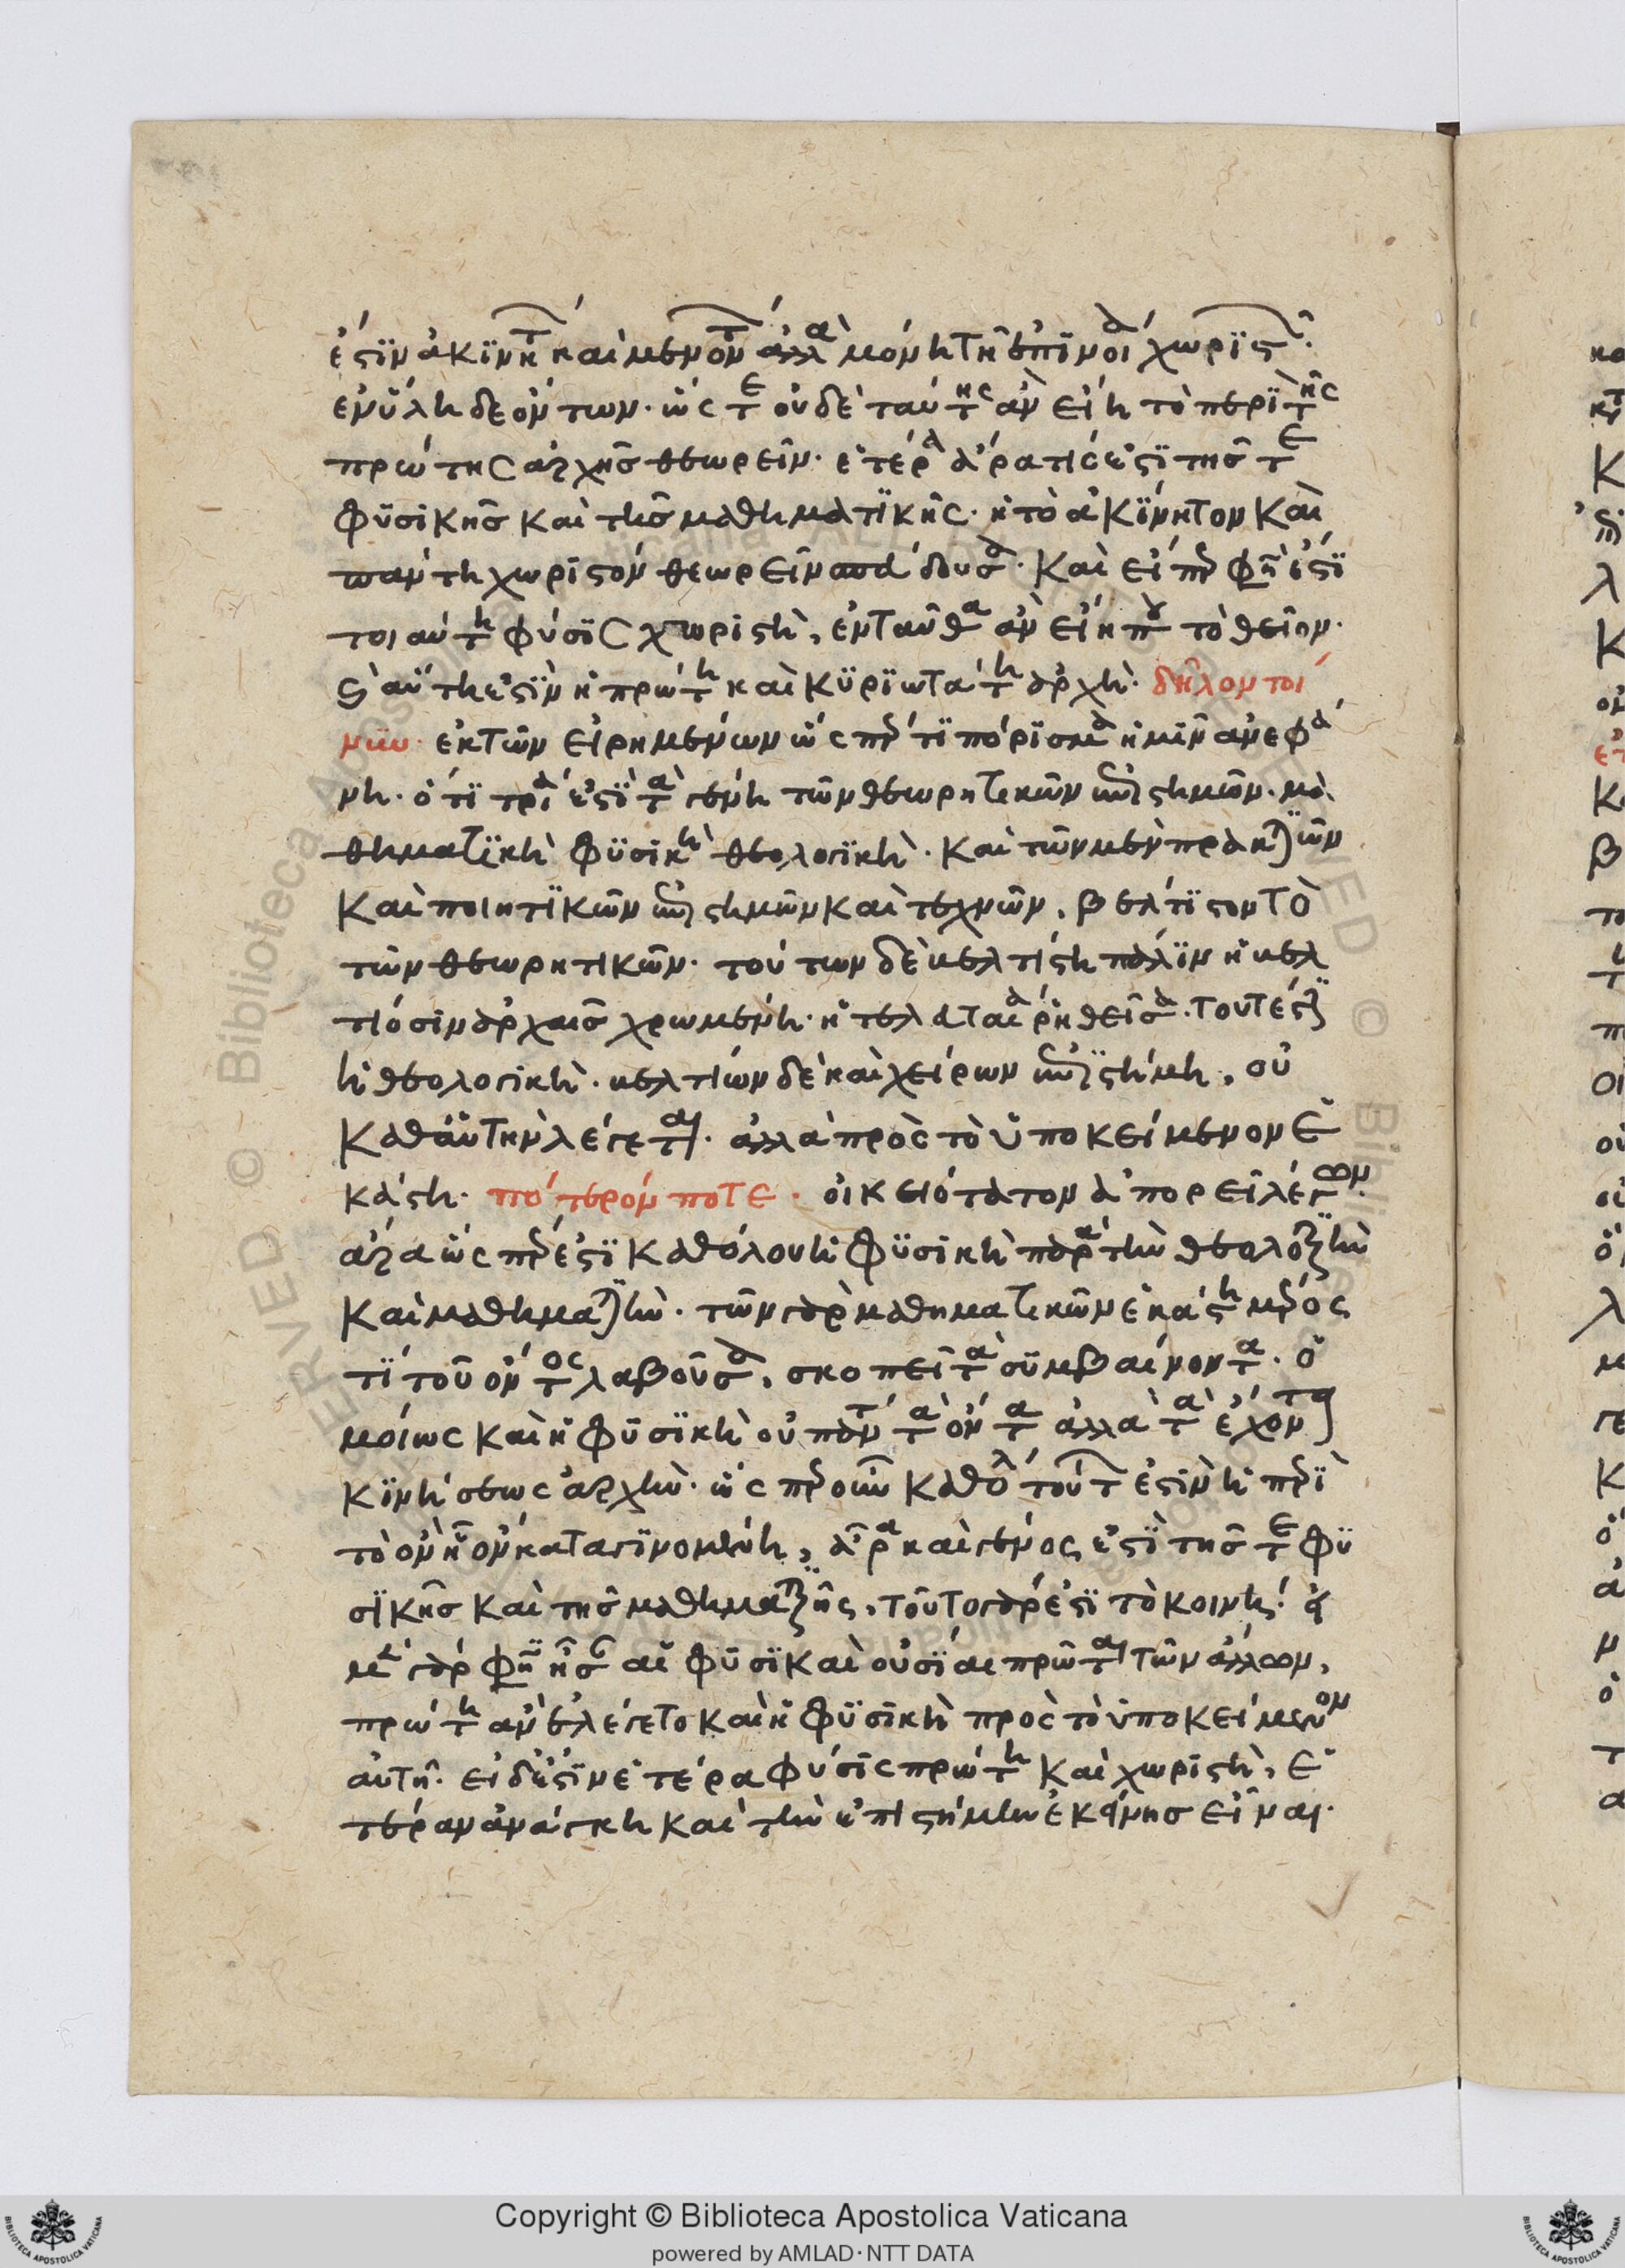 ἔστιν ἀκίνητα καὶ μένοντα ἀλλὰ μόνη τῇ ἐπινοίᾳ χωριστά.
ἐν ὕλῃ δὲ ὄντων. ὥστε οὐδὲ ταύτης ἂν εἴη τὸ περὶ τῆς
πρώτης ἀρχῆς θεωρεῖν. ἑτέρα ἄρα τίς ἐστι τῆς τε
φυσικῆς καὶ τῆς μαθηματικῆς. ἡ τὸ ἀκίνητον καὶ
πάντη χωριστὸν θεωρεῖν
τοιαύτη φύσις χωριστὴ, ἐνταῦθα ἂν εἴη που τὸ θεῖον.
καὶ αὕτη ἐστὶν ἡ πρώτη καὶ κυριωτάτη ἀρχή. δῆλον τοί
νυν. ἐκ τῶν εἰρημένων ὥσπερ τι πόρισμα ἡμῖν ἀνεφά
νη. ὅτι τρία ἐστὶ τὰ γένη τῶν θεωρητικῶν ἐπιστημῶν. μα
θηματικὴ φυσικὴ θεολογική. καὶ τῶν μὲν πρακτικῶν
καὶ ποιητικῶν ἐπιστημῶν καὶ τεχνῶν, βέλτιστον τὸ
τῶν θεωρητικῶν. τούτων δὲ βελτίστη πάλιν ἡ βελ
τίοσιν ἀρχαῖς χρωμένη. ἡ τελευταία ῥηθεῖσα. τουτέστιν
ἡ θεολογική. βελτίων δὲ καὶ χείρων ἐπιστήμη, οὐ
καθ αὑτὴν λέγεται. ἀλλὰ πρὸς τὸ ὑποκείμενον ἑ
κάστη. πότερόν ποτε. οἰκειότατον ἀπορεῖ λέγων.
ἆρα ὥσπερ ἐστὶ καθόλου ἡ φυσικὴ παρὰ τὴν θεολογικὴν
καὶ μαθηματικήν. τῶν γὰρ μαθηματικῶν ἑκάστη μέρος
τί τοῦ ὄντος λαβοῦσα, σκοπεῖ τὰ συμβαίνοντα. ὁ
μοίως καὶ ἡ φυσικὴ οὐ πάντα τὰ ὄντα ἀλλὰ τὰ ἔχοντα
κινήσεως ἀρχήν. ὥσπερ οὖν καθόλου τούτων ἐστὶν ἡ περὶ
τὸ ὂν ᾗ ὂν καταγινομένη, ἆρα καὶ γένος ἐστὶ τῆς τε φυ
σικῆς καὶ τῆς μαθηματικῆς, τοῦτο γάρ ἐστι τὸ κοινῇ. εἰ
μὲν γάρ φησιν ἦσαν αἱ φυσικαὶ οὐσίαι πρῶται τῶν ἄλλων,
πρώτη ἂν ἐλέγετο καὶ ἡ φυσικὴ πρὸς τὸ ὑποκείμενον
αὐτῇ. εἰ δ' ἔστιν ἑτέρα φύσις πρώτη καὶ χωριστὴ, ἑ
τέραν ἀνάγκη καὶ τὴν ἐπιστήμην ἐκείνης εἶναι.
Copyright © Biblioteca Apostolica Vaticana
powered by AMLAD·NTT DATA